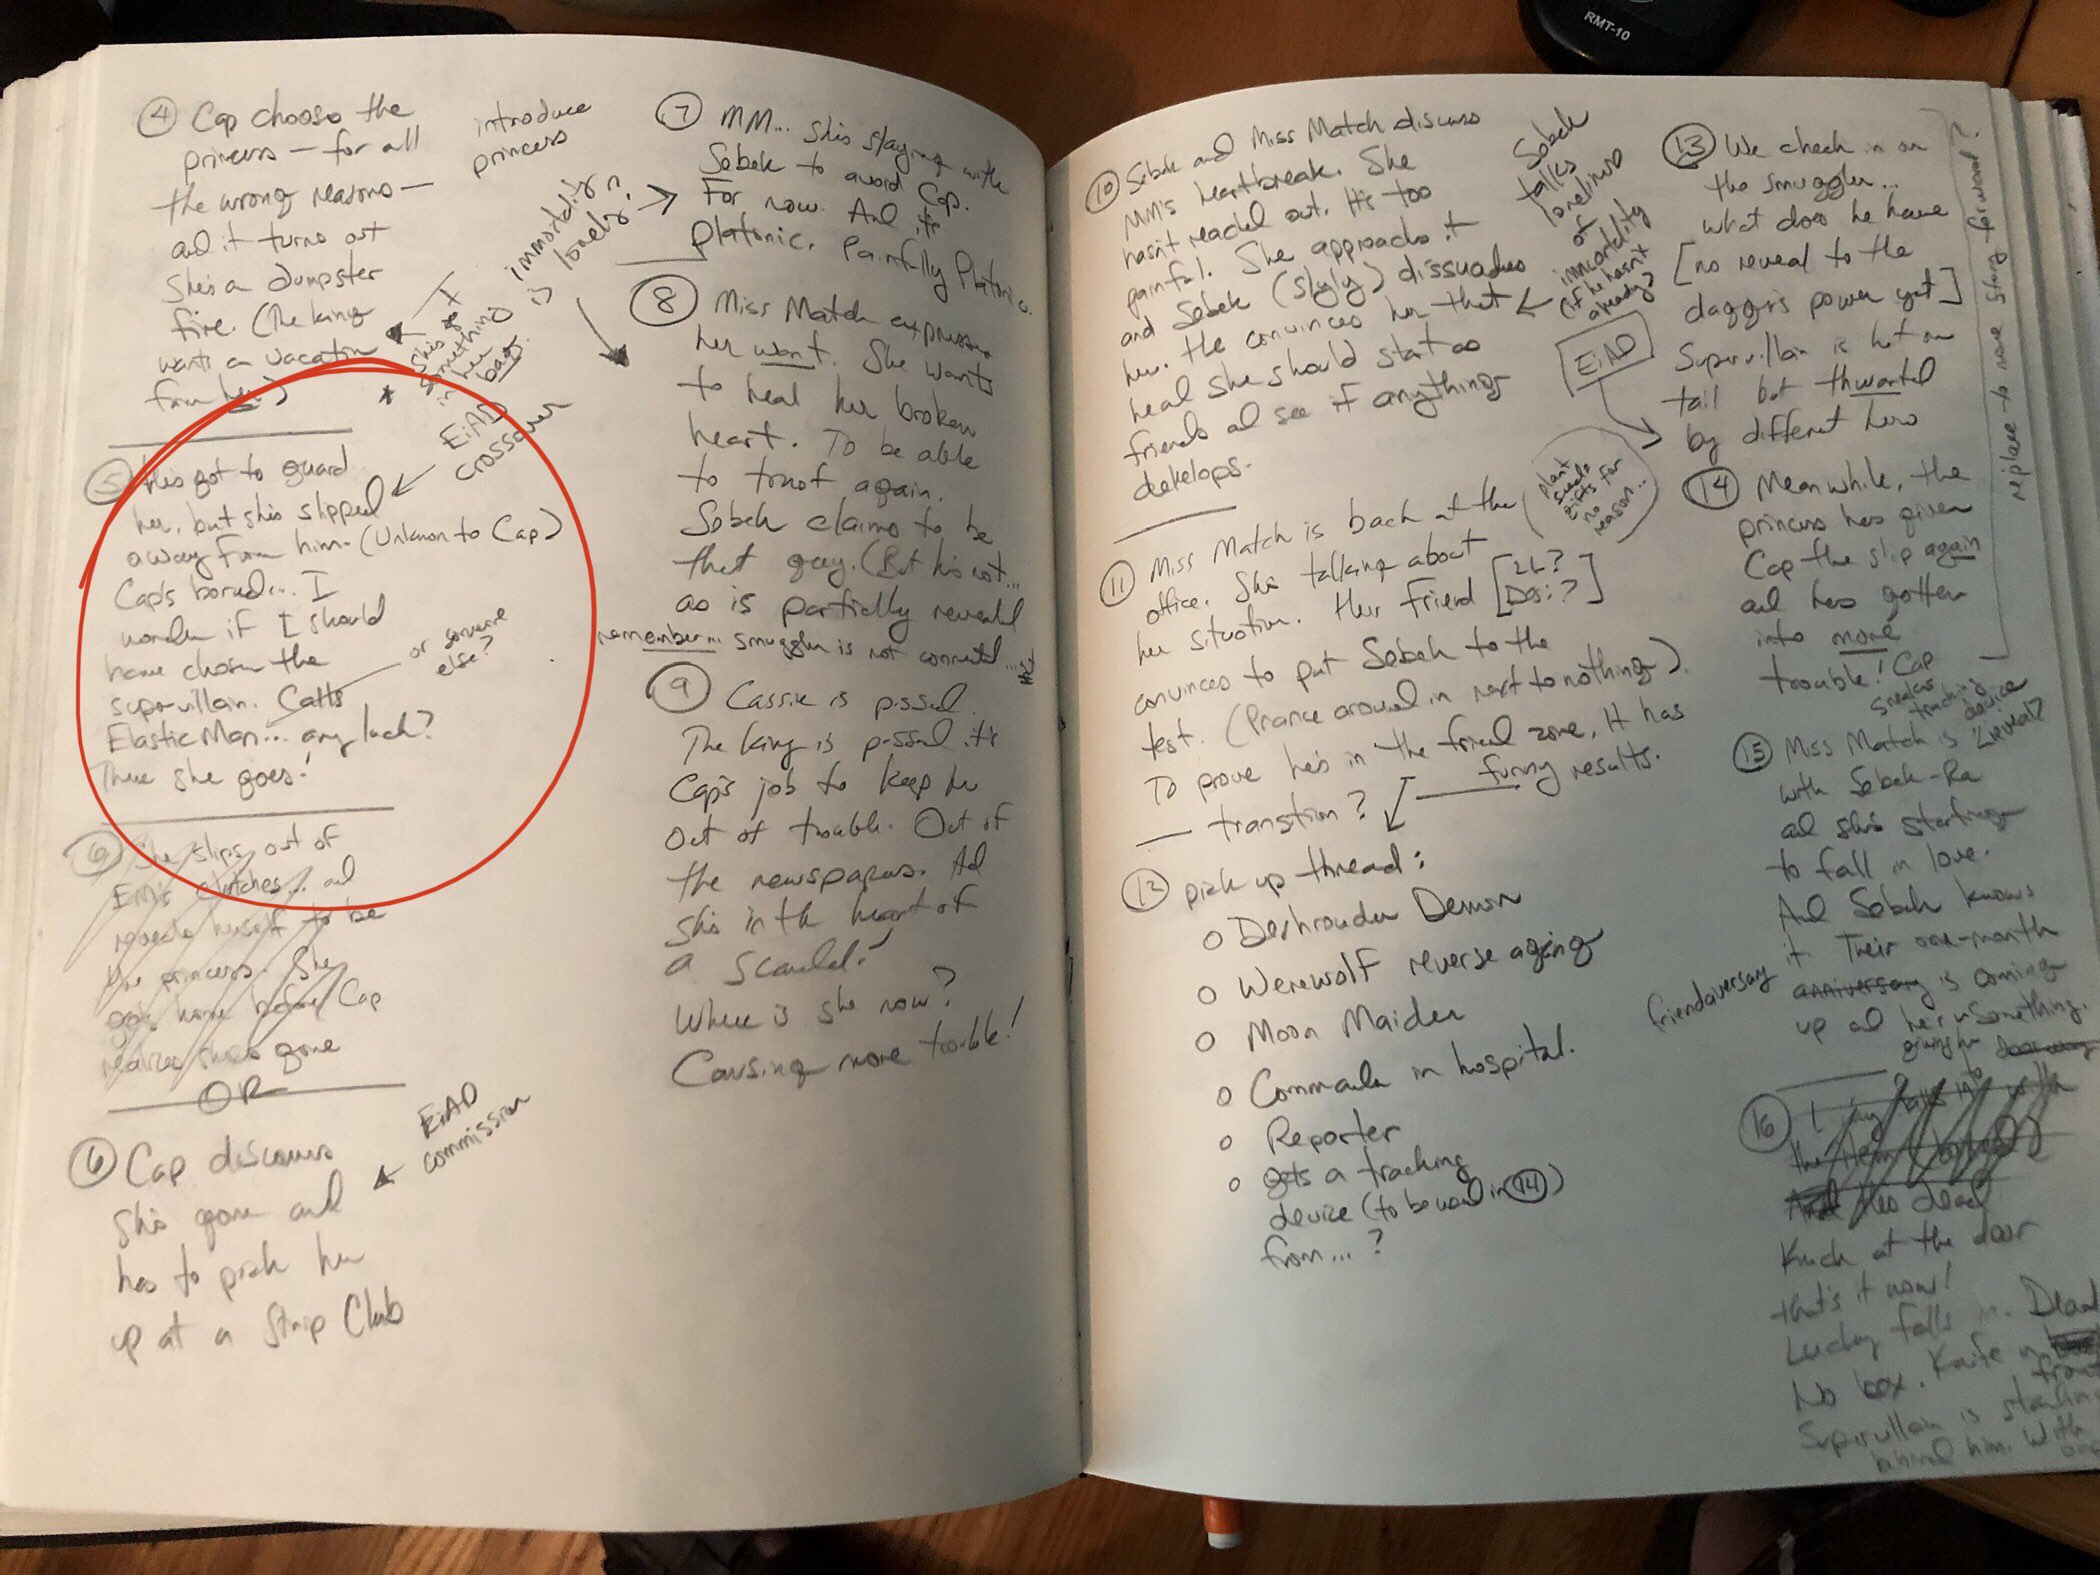 RMT-10
④ Cap chooses the
princess — for all
the wrong reasons —
and it turns out
she's a dumpster
fire. (The king
wants a vacation
from her.)
introduce
princess
immortality
is lonely?
* she's got
something
in her
bag.
EiAD
crossover
⑤ He's got to guard
her, but she's slipped
away from him. (Unknown to Cap)
Cap's bored... I
wonder if I should
have chosen the
supervillain. Calls
or someone
else?
Elastic Man... any luck?
There she goes!
⑥ She slips out of
EM's clutches... and
reveals herself to be
the princess. She
goes home before Cap
realizes she's gone
OR
⑥ Cap discovers
she's gone and
has to pick her
up at a Strip Club
EiAD
commission
⑦ MM... she's staying with
Sobek to avoid Cap.
For now. And it's
Platonic. Painfully Platonic.
⑧ Miss Match expresses
her want. She wants
to heal her broken
heart. To be able
to trust again.
Sobek claims to be
that guy. (But he's not...
as is partially revealed
remember... smuggler is not connected...
⑨ Cassie is pissed.
The king is pissed. it's
Cap's job to keep her
out of trouble. Out of
the newspapers. And
she's in the heart of
a scandal!
Where is she now?
Causing more trouble!
⑩ Sobek and Miss Match discuss
MM's heartbreak. She
hasn't reached out. It's too
painful. She approaches it
and Sobek (slyly) dissuades
her. He convinces her that
heal she should start as
friends and see if anything
develops.
Sobek
talks
loneliness
of
immortality
(if he hasn't
already)
⑪ Miss Match is back at the
office. She's talking about
her situation. Her friend [ ? Desi?]
convinces to put Sobek to the
test. (Prance around in next to nothing).
To prove he's in the friend zone. It has
funny results.
transition?
plant
seeds
gifts for
no
reason...
⑫ pick up thread:
o Deshrouder Demon
o Werewolf reverse aging
o Moon Maiden
o Commander in hospital.
o Reporter
o gets a tracking
device (to be used in ⑭)
from...?
⑬ We check in on
the smuggler...
what does he have
[no reveal to the
dagger's power yet]
Supervillain is hot on
tail but thwarted
by different hero
EiAD
replace to move story forward?
⑭ Meanwhile, the
princess has given
Cap the slip again
and has gotten
into more
trouble! Cap
sneaks
tracking
device
⑮ Miss Match is
with Sobek-Ra
and she's starting
to fall in love.
And Sobek knows
it. Their one-month
anniversary is coming
friendaversary
up and he's
giving her something.
⑯
the
dead
Knock at the door
that's it now!
Lucky falls in. Dead
No box. Knife in
from
Supervillain is standing
behind him. With